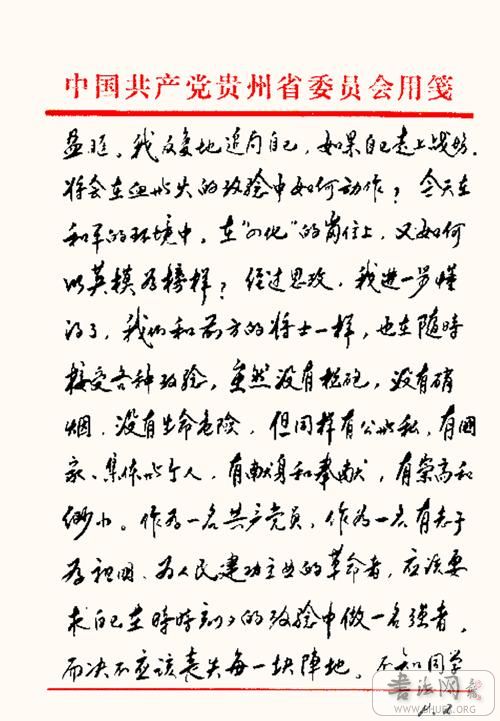 中国共产党贵州省委员会用笺
热眶。我反复地追问自己，如果自己走上战场，
将会在血与火的考验中如何动作？今天在
和平的环境中，在“四化”的岗位上，又如何
以英模为榜样？经过思考，我进一步懂
得了，我们和前方的将士一样，也在随时
接受各种考验，虽然没有枪砲，没有硝
烟，没有生命危险，但同样有公与私，有國
家、集体与个人，有献身和奉献，有崇高和
渺小。作为一名共产党员，作为一名有志于
为祖國、为人民建功立业的革命者，应该要
求自己在時時刻刻的考验中做一名强者，
而决不应该丧失每一块陣地。不知同学
书法网
SHUFA.ORG